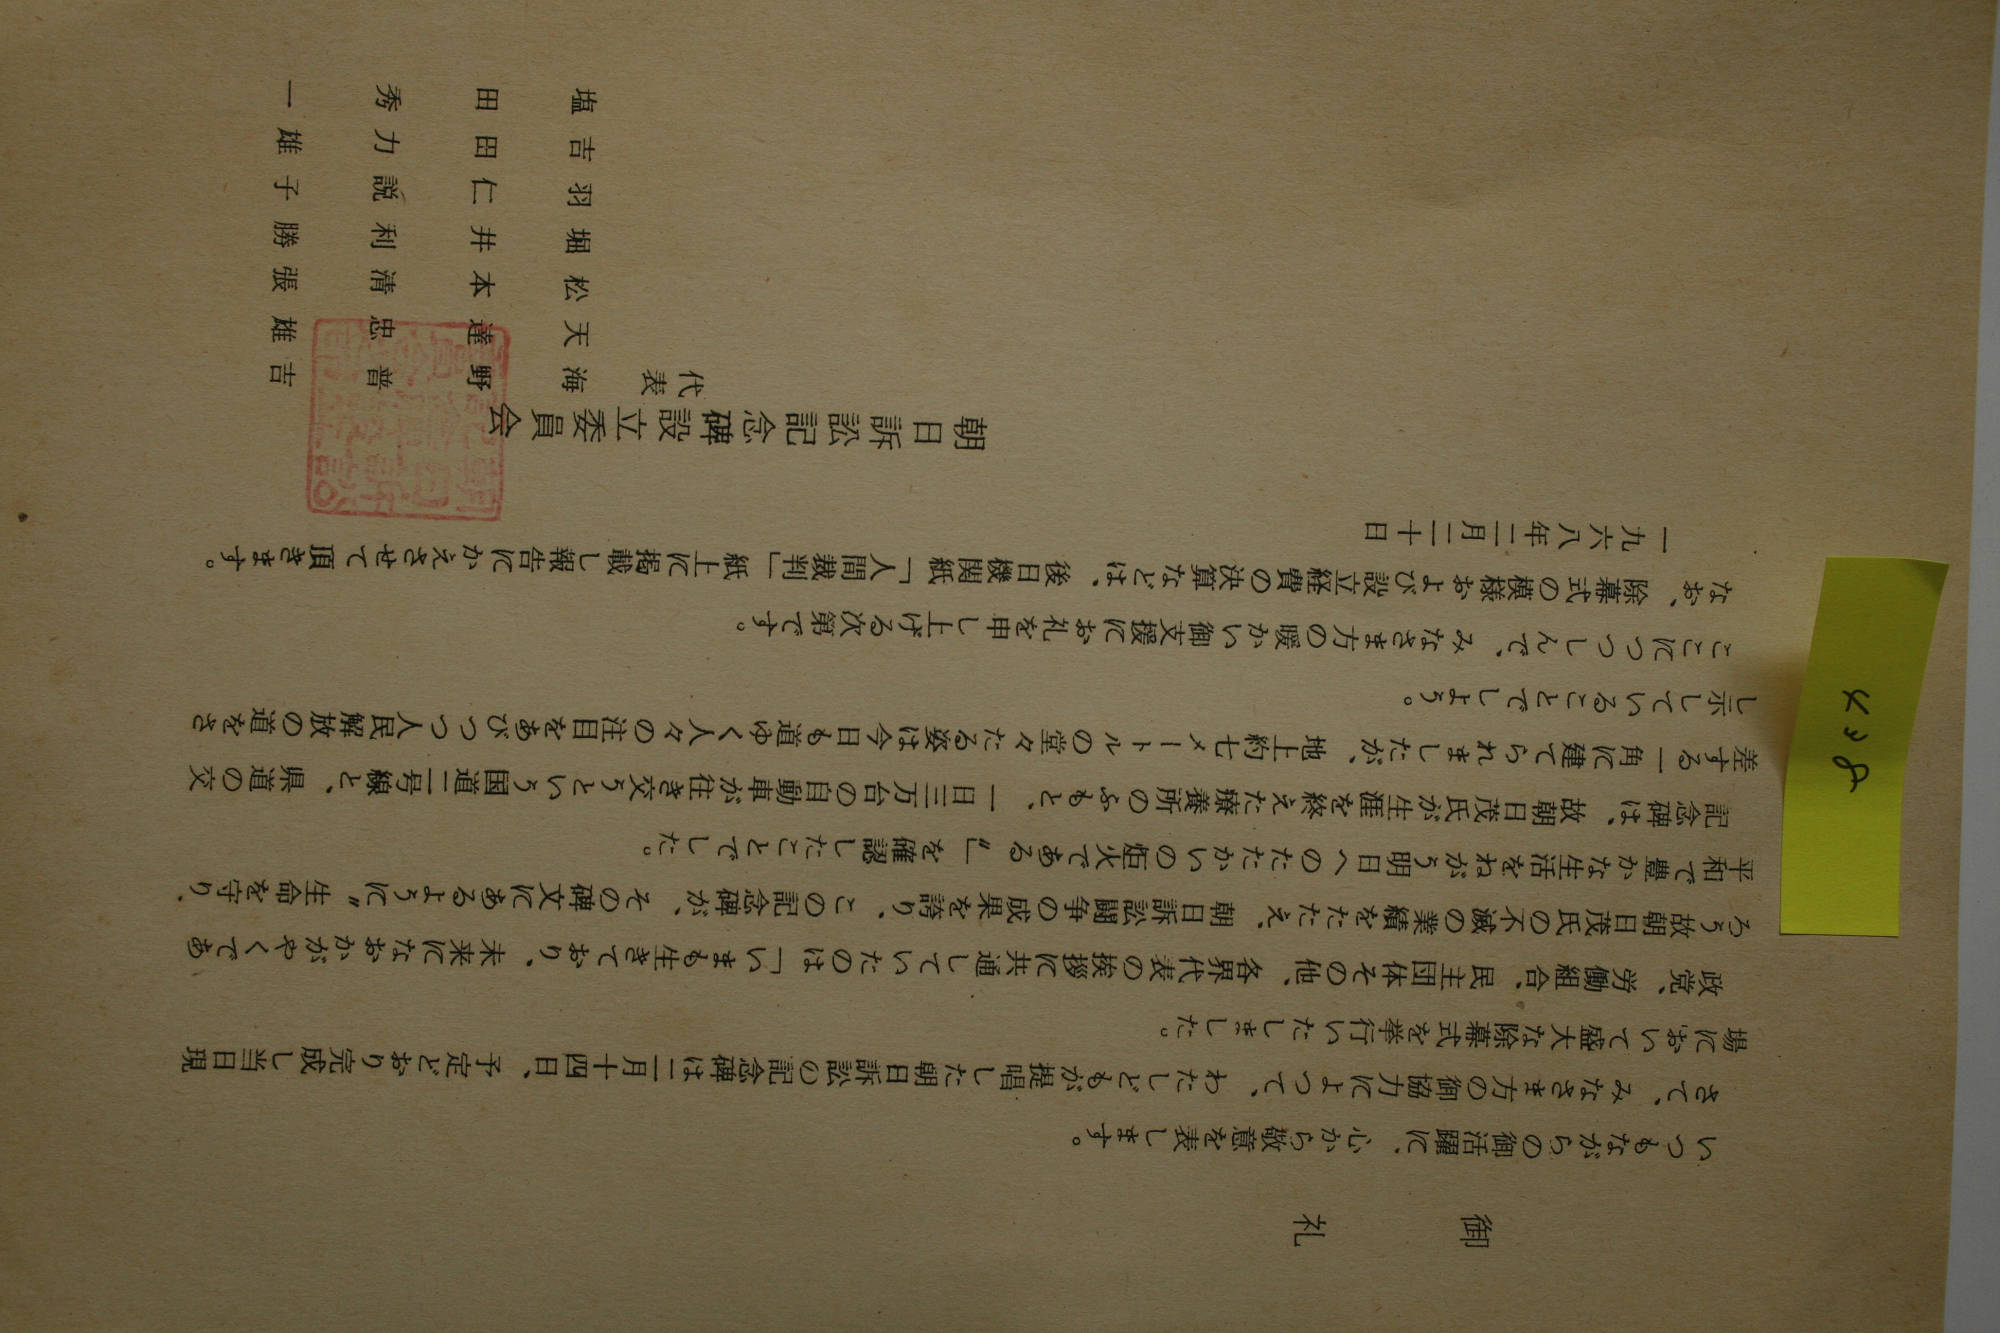 御礼
いつもながらの御活躍に、心から敬意を表します。
さて、みなさま方の御協力によつて、わたしどもが提唱した朝日訴訟の記念碑は二月十四日、予定どおり完成し当日現
場において盛大な除幕式を挙行いたしました。
政党、労働組合、民主団体その他、各界代表の挨拶に共通していたのは「いまも生きており、未来になおかがやくであ
ろう故朝日茂氏の不滅の業績をたたえ、朝日訴訟闘争の成果を誇り、この記念碑が、その碑文にあるように〝生命を守り、
平和で豊かな生活をねがう明日へのたたかいの炬火である〟」を確認したことでした。
記念碑は、故朝日茂氏が生涯を終えた療養所のふもと、一日三万台の自動車が往き交うという国道二号線と、県道の交
差する一角に建てられましたが、地上約七メートルの堂々たる姿は今日も道ゆく人々の注目をあびつつ人民解放の道をさ
し示していることでしよう。
ここにつつしんで、みなさま方の暖かい御支援にお礼を申し上げる次第です。
なお、除幕式の模様および設立経費の決算などは、後日機関紙「人間裁判」紙上に掲載し報告にかえさせて頂きます。
一九六八年二月二十日
朝日訴訟記念碑設立委員会
代表
海野普吉
天達忠雄
松本清張
堀井利勝
羽仁説子
吉田力雄
塩田秀一